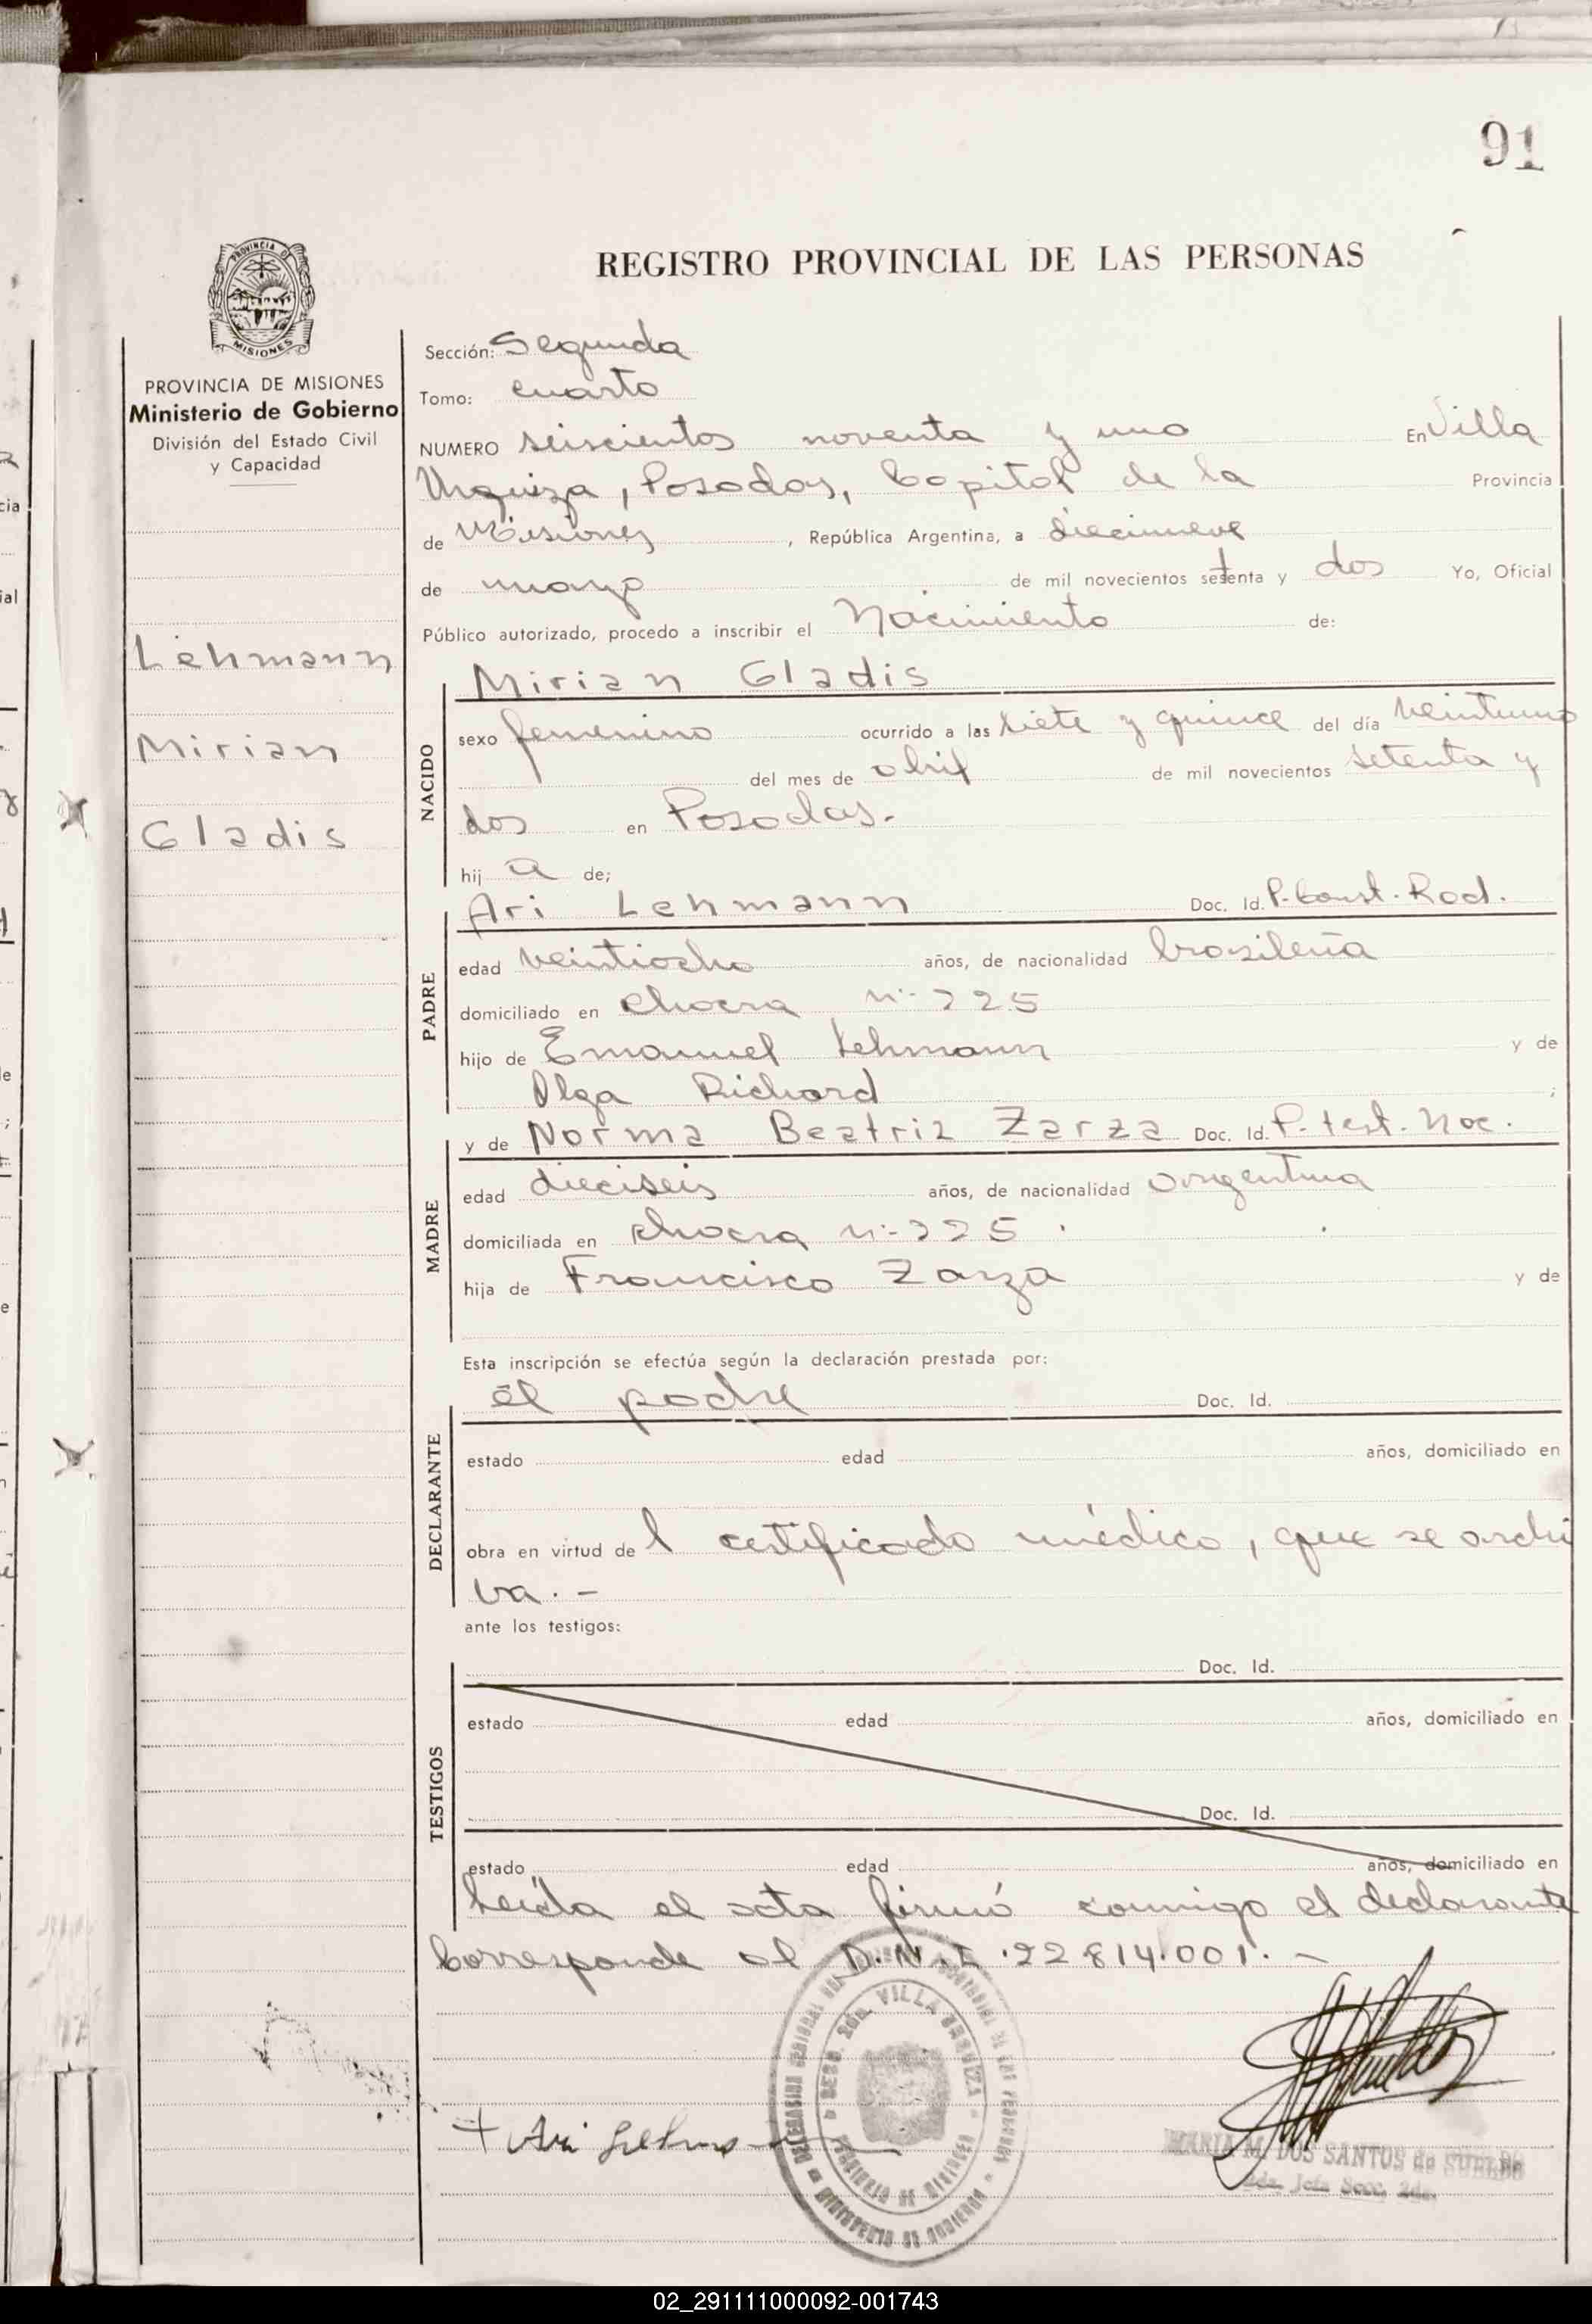 91
REGISTRO PROVINCIAL DE LAS PERSONAS
PROVINCIA DE MISIONES
PROVINCIA DE MISIONES
Ministerio de Gobierno
División del Estado Civil
y Capacidad
Lehmann
Mirian
Gladis
Sección: Segunda
Tomo: cuarto
NUMERO seiscientos noventa y uno En Villa
Urquiza, Posadas, Capital de la Provincia
de Misiones, República Argentina, a diecinueve
de mayo de mil novecientos setenta y dos Yo, Oficial
Público autorizado, procedo a inscribir el Nacimiento de:
Mirian Gladis
NACIDO
sexo femenino ocurrido a las siete y quince del día veintiuno
del mes de abril de mil novecientos setenta y
dos en Posadas.
hij a de;
Ari Lehmann Doc. Id. P. Const. Rad.
PADRE
edad veintiocho años, de nacionalidad brasileña
domiciliado en chacra n:- 225
hijo de Emanuel Lehmann y de
Olga Richard ;
y de Norma Beatriz Zarza Doc. Id. P. test. Nac.
MADRE
edad dieciseis años, de nacionalidad argentina
domiciliada en chacra n:- 225
hija de Francisco Zarza y de
Esta inscripción se efectúa según la declaración prestada por:
él padre Doc. Id.
DECLARANTE
estado edad años, domiciliado en
obra en virtud de l certificado médico, que se archi
va. -
ante los testigos:
Doc. Id.
TESTIGOS
estado edad años, domiciliado en
Doc. Id.
estado edad años, domiciliado en
Leída el acta firmó conmigo el declarante
Corresponde al D.N.I. 22 814.001. -
VILLA URQUIZA
PROVINCIA DE MISIONES
MINISTERIO DE GOBIERNO
+ Ari Lehmann
MARIA M. DOS SANTOS de SUELDO
02_291111000092-001743